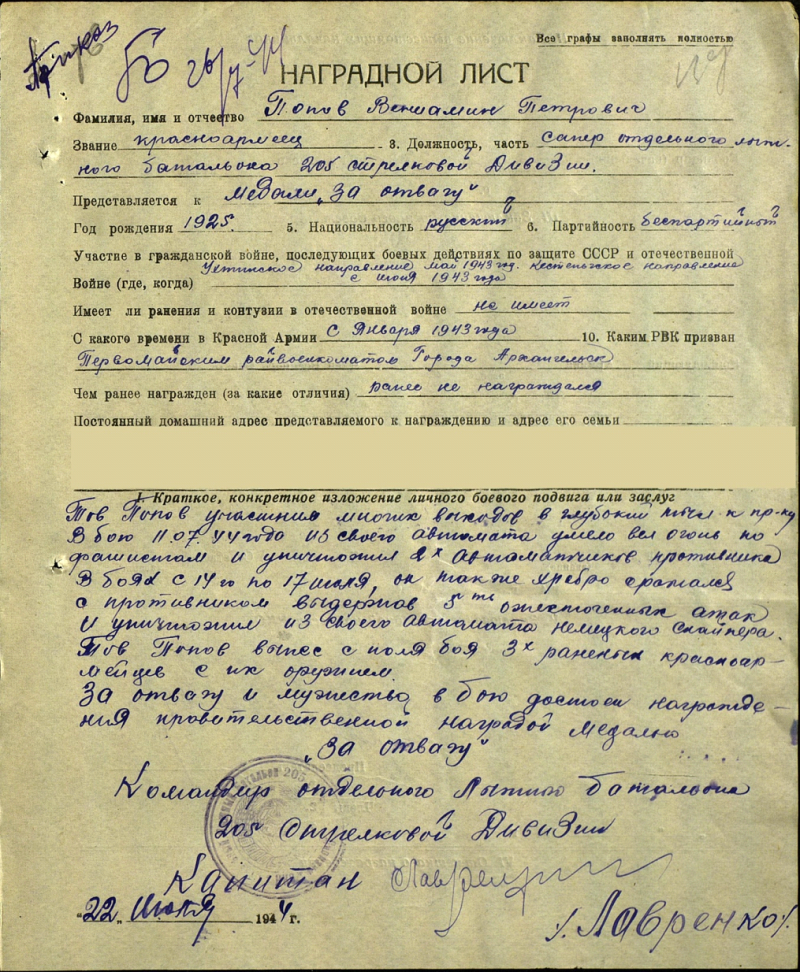 Приказ
60 26/7-44
Все графы заполнять полностью
НАГРАДНОЙ ЛИСТ
Фамилия, имя и отчество Попов Вениамин Петрович
Звание красноармеец 3. Должность, часть сапер отдельного лыж-
ного батальона 205 стрелковой Дивизии.
Представляется к медали „За отвагу"
Год рождения 1925. 5. Национальность русский 6. Партийность беспартийный
Участие в гражданской войне, последующих боевых действиях по защите СССР и отечественной
Ухтинское направление май 1943 год. Кестеньгское направление
Войне (где, когда) с июня 1943 года
Имеет ли ранения и контузии в отечественной войне не имеет
С какого времени в Красной Армии с Января 1943 года 10. Каким РВК призван
Первомайским райвоенкоматом Города Архангельск
Чем ранее награжден (за какие отличия) ранее не награждался
Постоянный домашний адрес представляемого к награждению и адрес его семьи
I. Краткое, конкретное изложение личного боевого подвига или заслуг
Тов Попов участник многих выходов в глубокий тыл к пр-ку
В бою 11.07.44 года из своего автомата умело вел огонь по
фашистам и уничтожил 2х автоматчиков противника
В боях с 14го по 17 июля, он также храбро сражался
с противником выдержав 5ть ожесточенных атак
И уничтожил из своего автомата немецкого снайпера.
Тов Попов вынес с поля боя 3х раненых красноар-
мейцев с их оружием.
За отвагу и мужество в бою достоен награжде-
ния правительственной наградой Медалью
„За отвагу"
Командир отдельного Лыжного батальона
205 Стрелковой Дивизии
Капитан
"22" Июля 1944 г.
/Лавренко/.